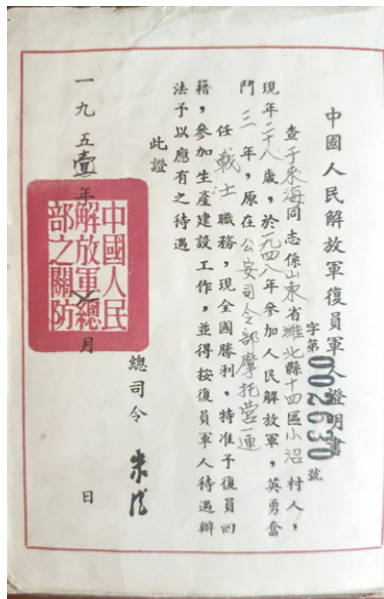 中國人民解放軍復員軍人證明書
字第002630號
查于來海同志係山東省濰北縣十四區小沼村人，
現年二十八歲，於一九四八年參加人民解放軍，英勇奮
鬥三年，原在公安司令部摩托营一連
任戰士職務，現全國勝利，特准予復員回
籍，參加生產建設工作，並得按復員軍人待遇辦
法予以應有之待遇
此證
總司令 朱德
一九五壹年 月 日
中國人民
解放軍總
部之關防